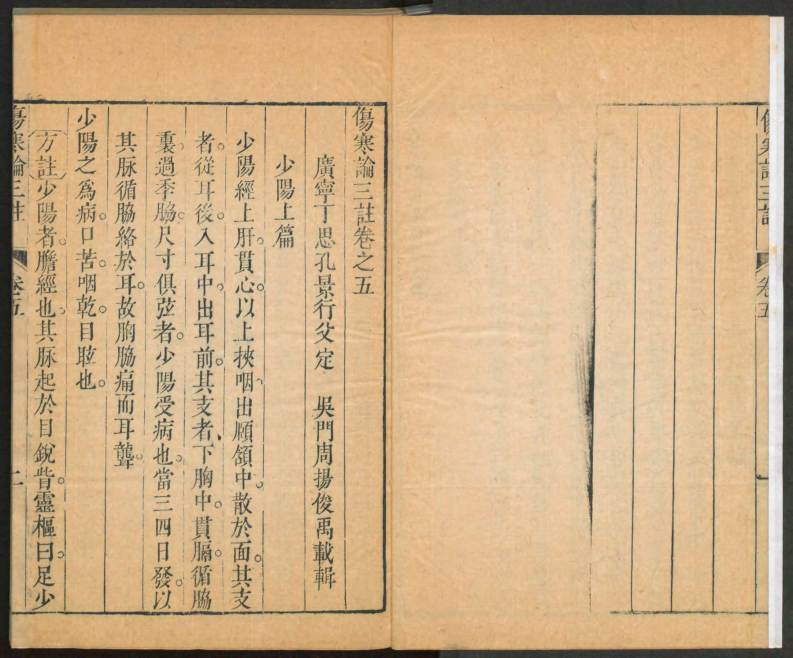 傷寒論三註
卷五
一
傷寒論三註卷之五
廣寧丁思孔景行父定 吳門周揚俊禹載輯
少陽上篇
少陽經上肝貫心。以上挾咽出頤頷中。散於面。其支
者。從耳後。入耳中。出耳前。其支者、下胸中。貫膈。循脇
裏。過季脇。尺寸俱弦者。少陽受病也。當三四日發。以
其脉循脇絡於耳。故胸脇痛而耳聾。
少陽之爲病。口苦。咽乾。目眩也。
方註少陽者。膽經也。其脉起於目銳眥。靈樞曰。足少
傷寒論三註
卷五
二